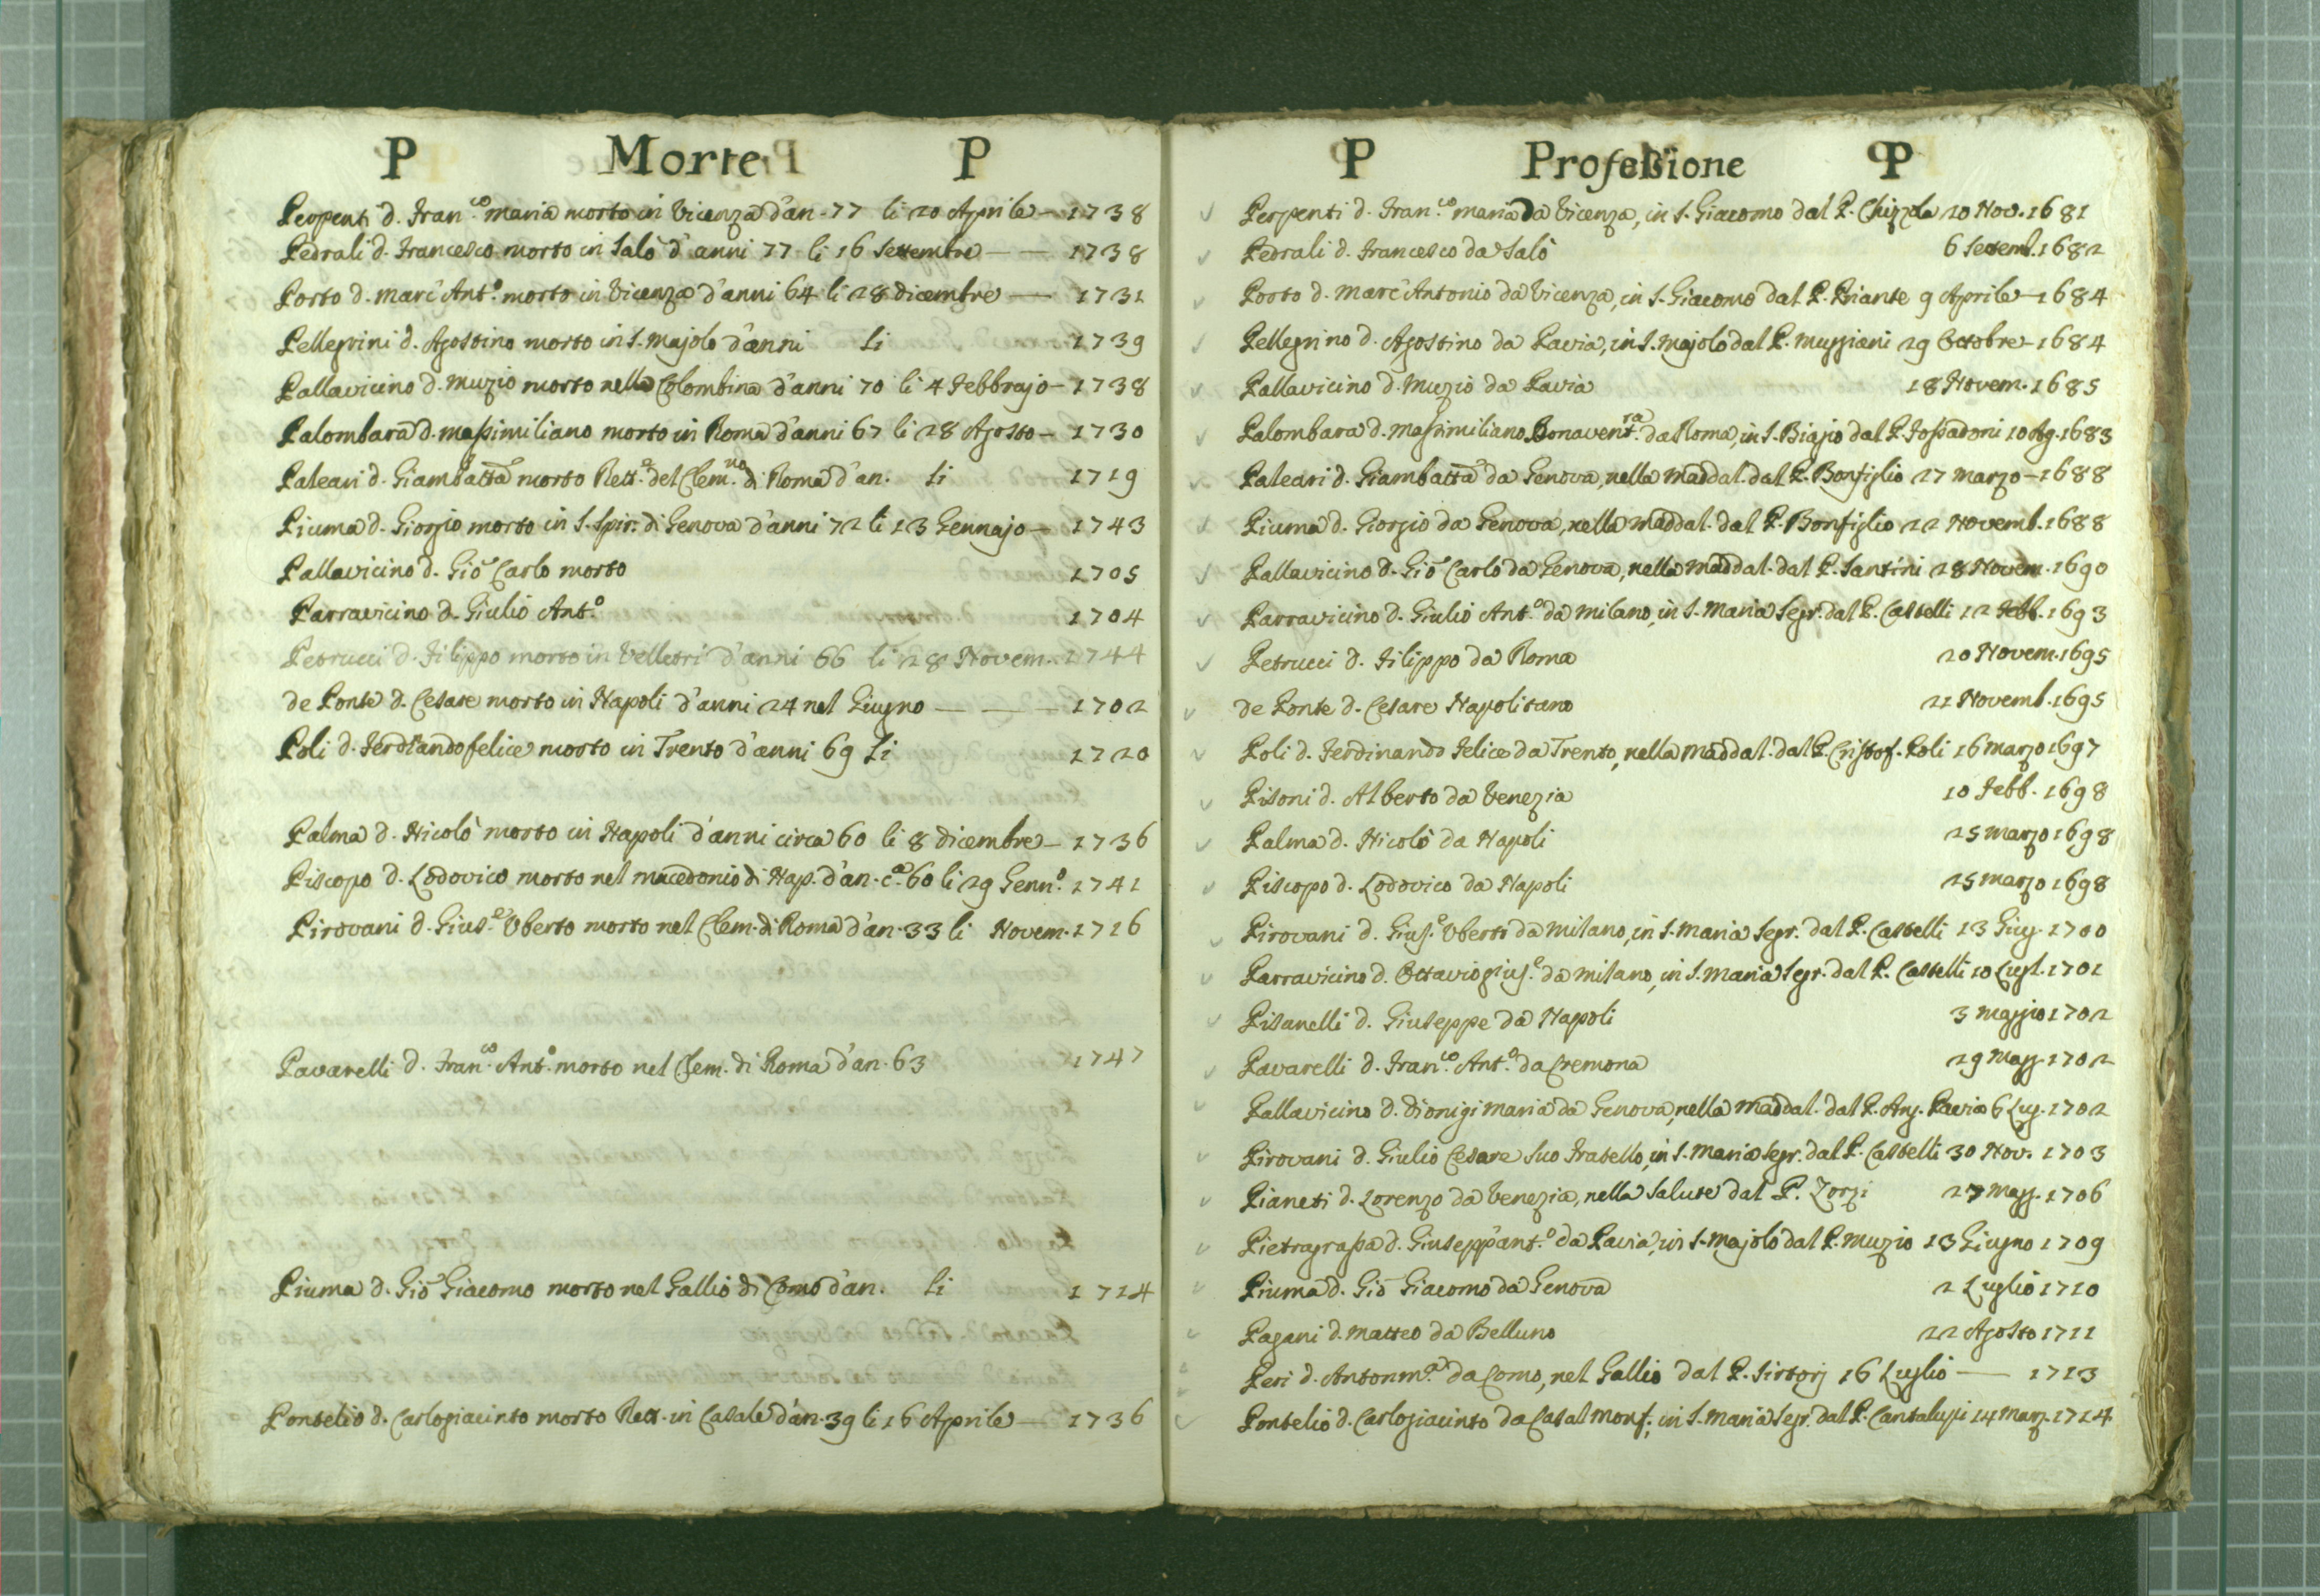 P Morte P
Perpenti d. Fran.co maria morto in Vicenza d'an. 77 li 20 Aprile — 1738
Pedrali d. Francesco morto in Salò d'anni 77 li 16 Settembre — — 1738
Porto d. Marc'Ant.o morto in Vicenza d'anni 64 li 28 dicembre — 1731
Pellegrini d. Agostino morto in S. Majolo d'anni li 1739
Pallavicino d. Muzio morto nella Colombina d'anni 70 li 4 Febbrajo — 1738
Palombara d. Massimiliano morto in Roma d'anni 67 li 28 Agosto — 1730
Paleari d. Giambatta morto Rett.e del Clem.no di Roma d'an. li 1719
Piuma d. Giorgio morto in S. Spir. di Genova d'anni 72 li 13 Gennajo — 1743
Pallavicino d. Gio Carlo morto 1705
Parravicino d. Giulio Ant.o 1704
Petrucci d. Filippo morto in Velletri d'anni 66 li 28 Novem. 1744
de Ponte d. Cesare morto in Napoli d'anni 24 nel Giugno — — — 1702
Poli d. Ferdinando felice morto in Trento d'anni 69 li 1720
Palma d. Nicolò morto in Napoli d'anni circa 60 li 8 dicembre — 1736
Piscopo d. Lodovico morto nel macedonio di Nap. d'an. c.a 60 li 29 Genn.o 1741
Pirovani d. Gius.e Uberto morto nel Clem. di Roma d'an. 33 li Novem. 1716
Pavarelli d. Fran.co Ant.o morto nel Clem. di Roma d'an. 63 1747
Piuma d. Gio Giacomo morto nel Gallio di Como d'an. li 1714
Pontelio d. Carlogiacinto morto Rett. in Casale d'an. 39 li 16 Aprile — 1736
P Professione P
Perpenti d. Fran.co maria da Vicenza, in S. Giacomo dal P. Chizzola 20 Nov. 1681
Pedrali d. Francesco da Salò 6 Settemb. 1682
Porto d. Marc'Antonio da Vicenza, in S. Giacomo dal P. Priante 9 Aprile — 1684
Pellegrino d. Agostino da Pavia, in S. Majolo dal P. Muggiani 29 Ottobre — 1684
Pallavicino d. Muzio da Pavia 18 Novem. 1685
Palombara d. Massimiliano Bonavent.ra da Roma, in S. Biagio dal P. Fossadoni 10 Ag. 1683
Paleari d. Giambatta da Genova, nella Maddal. dal P. Bonfiglio 27 Marzo — 1688
Piuma d. Giorgio da Genova, nella Maddal. dal P. Bonfiglio 22 Novemb. 1688
Pallavicino d. Gio Carlo da Genova, nella Maddal. dal P. Santini 28 Novem. 1690
Parravicino d. Giulio Ant.o da Milano, in S. Maria Segr. dal P. Castelli 12 Febb. 1693
Petrucci d. Filippo da Roma 20 Novem. 1695
de Ponte d. Cesare Napolitano 21 Novemb. 1695
Poli d. Ferdinando Felice da Trento, nella Maddal. dal P. Cristof. Poli 16 Marzo 1697
Pisoni d. Alberto da Venezia 10 Febb. 1698
Palma d. Nicolò da Napoli 25 Marzo 1698
Piscopo d. Lodovico da Napoli 25 Marzo 1698
Pirovani d. Gius.e Uberto da Milano, in S. Maria Segr. dal P. Castelli 13 Giug. 1700
Parravicino d. Ottavio gius.e da Milano, in S. Maria Segr. dal P. Castelli 10 Lugl. 1701
Pisanelli d. Giuseppe da Napoli 3 Maggio 1702
Pavarelli d. Fran.co Ant.o da Cremona 29 Magg. 1702
Pallavicino d. Dionigi maria da Genova, nella Maddal. dal P. Ang. Pavia 6 Lug. 1702
Pirovani d. Giulio Cesare suo Fratello, in S. Maria Segr. dal P. Castelli 30 Nov. 1703
Pianeti d. Lorenzo da Venezia, nella Salute dal P. Zorzi 27 Magg. 1706
Pietragrassa d. Giusepp'ant.o da Pavia, in S. Majolo dal P. Muzio 13 Giugno 1709
Piuma d. Gio Giacomo da Genova 2 Luglio 1710
Pagani d. Matteo da Belluno 22 Agosto 1711
Peri d. Antonm.a da Como, nel Gallio dal P. Sirtorj 16 Luglio — 1713
Pontelio d. Carlogiacinto da Casal Monf., in S. Maria Segr. dal P. Cantalupi 14 Marz. 1714